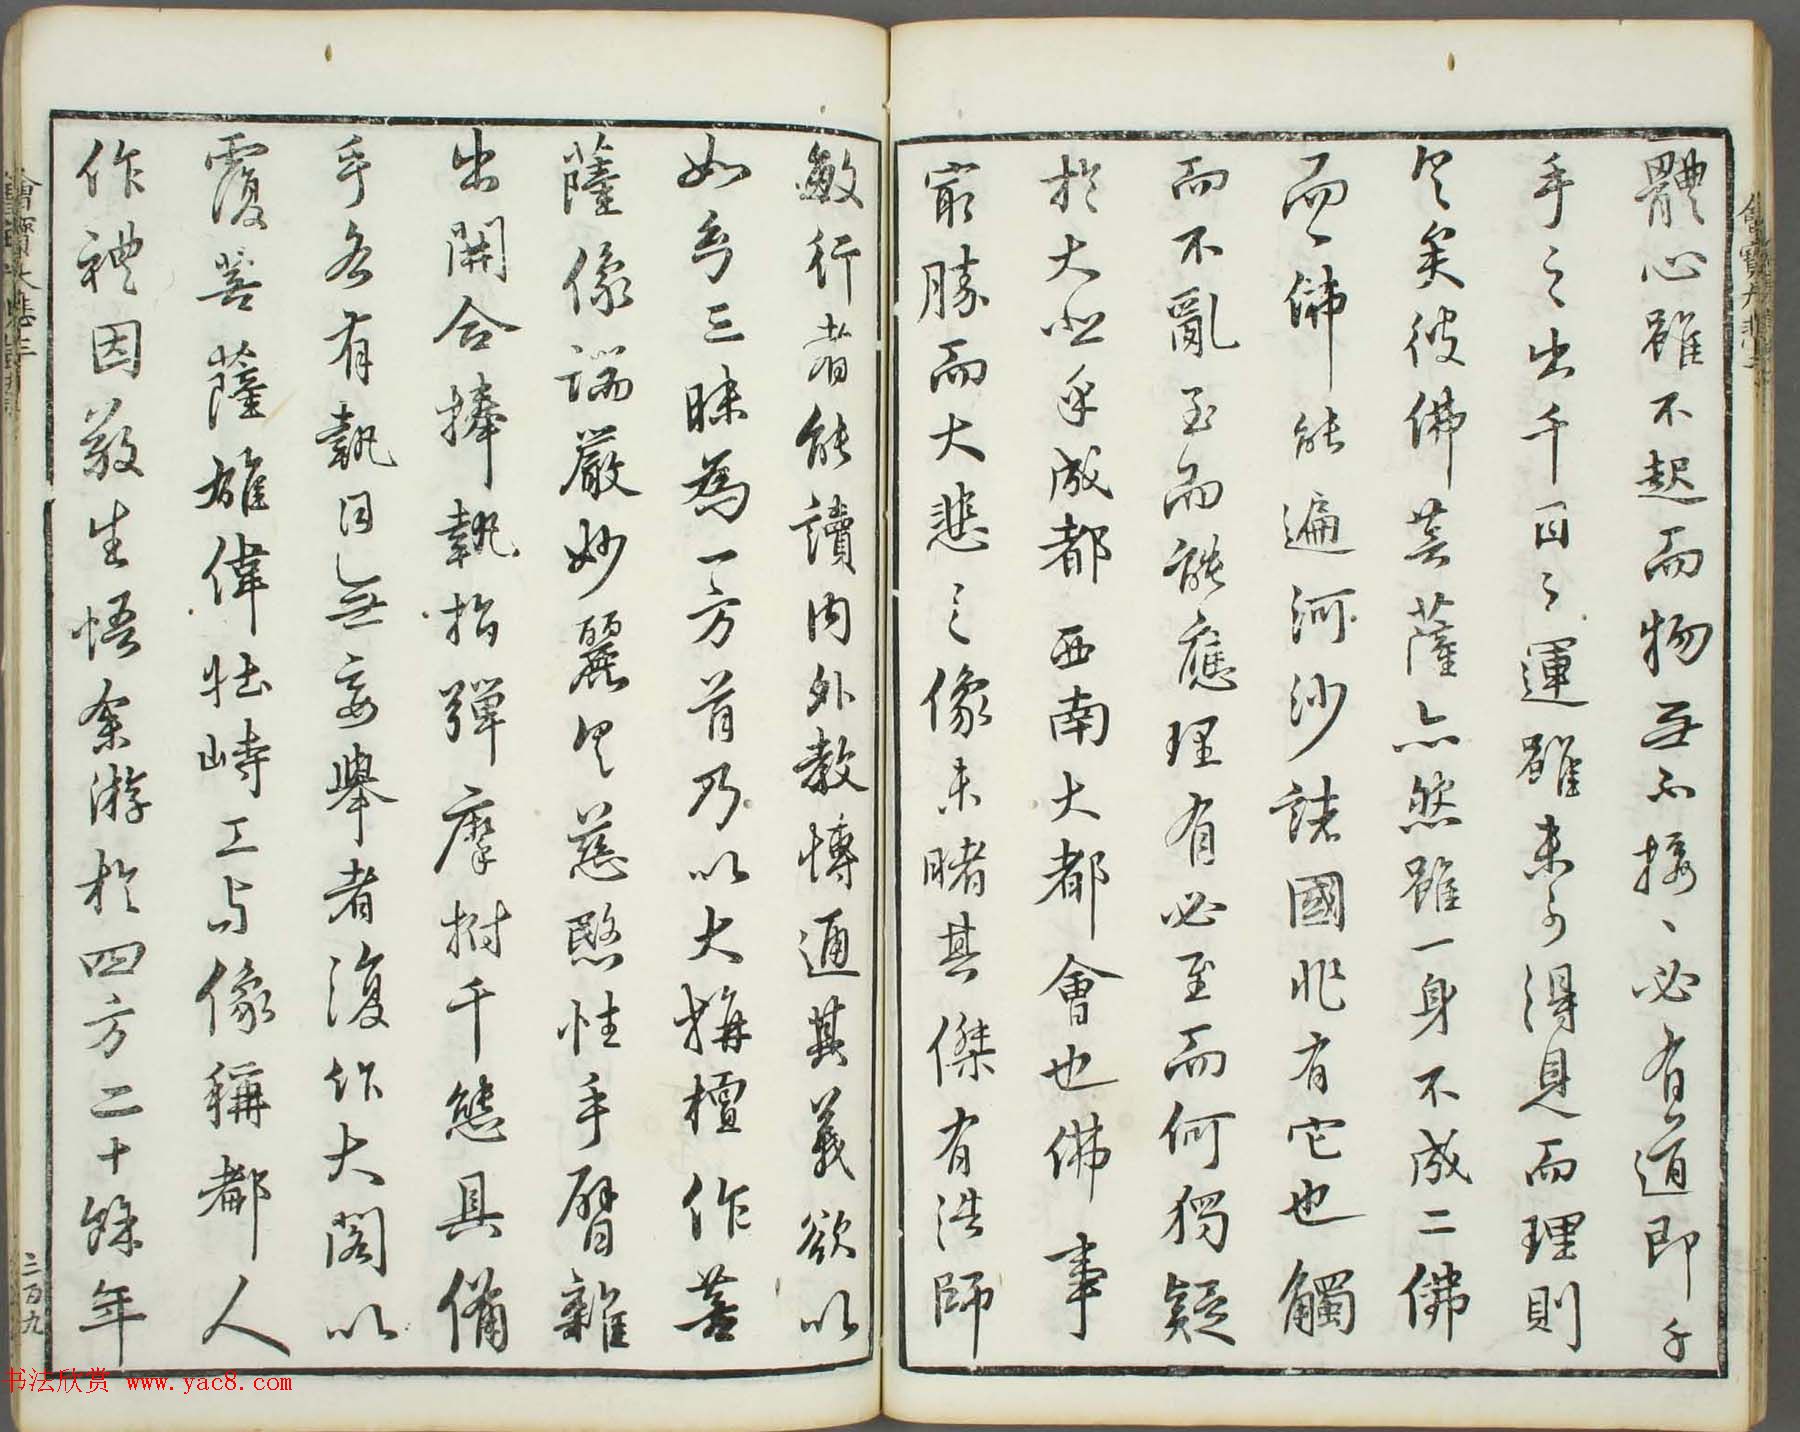 體心雖不起而物無不接〻必有道即千
手之出千目〻運雖未可得見而理則
具矣彼佛菩薩亦然雖一身不成二佛
而一佛能遍河沙諸國非有它也觸
而不亂至而能應理有必至而何獨疑
於大悲乎成都西南大都會也佛事
最勝而大悲之像未睹其傑有法師
敏行者能讀內外教博通其義欲以
如幻三昧為一方首乃以大旃檀作菩
薩像端嚴妙麗具慈愍性手臂雜
出開合捧執指彈摩拊千態具備
手各有執目無妄舉者復作大閣以
覆菩薩雄偉壯峙工与像稱都人
作禮因敬生悟余游於四方二十餘年
三百九
书法欣赏 www.yac8.com